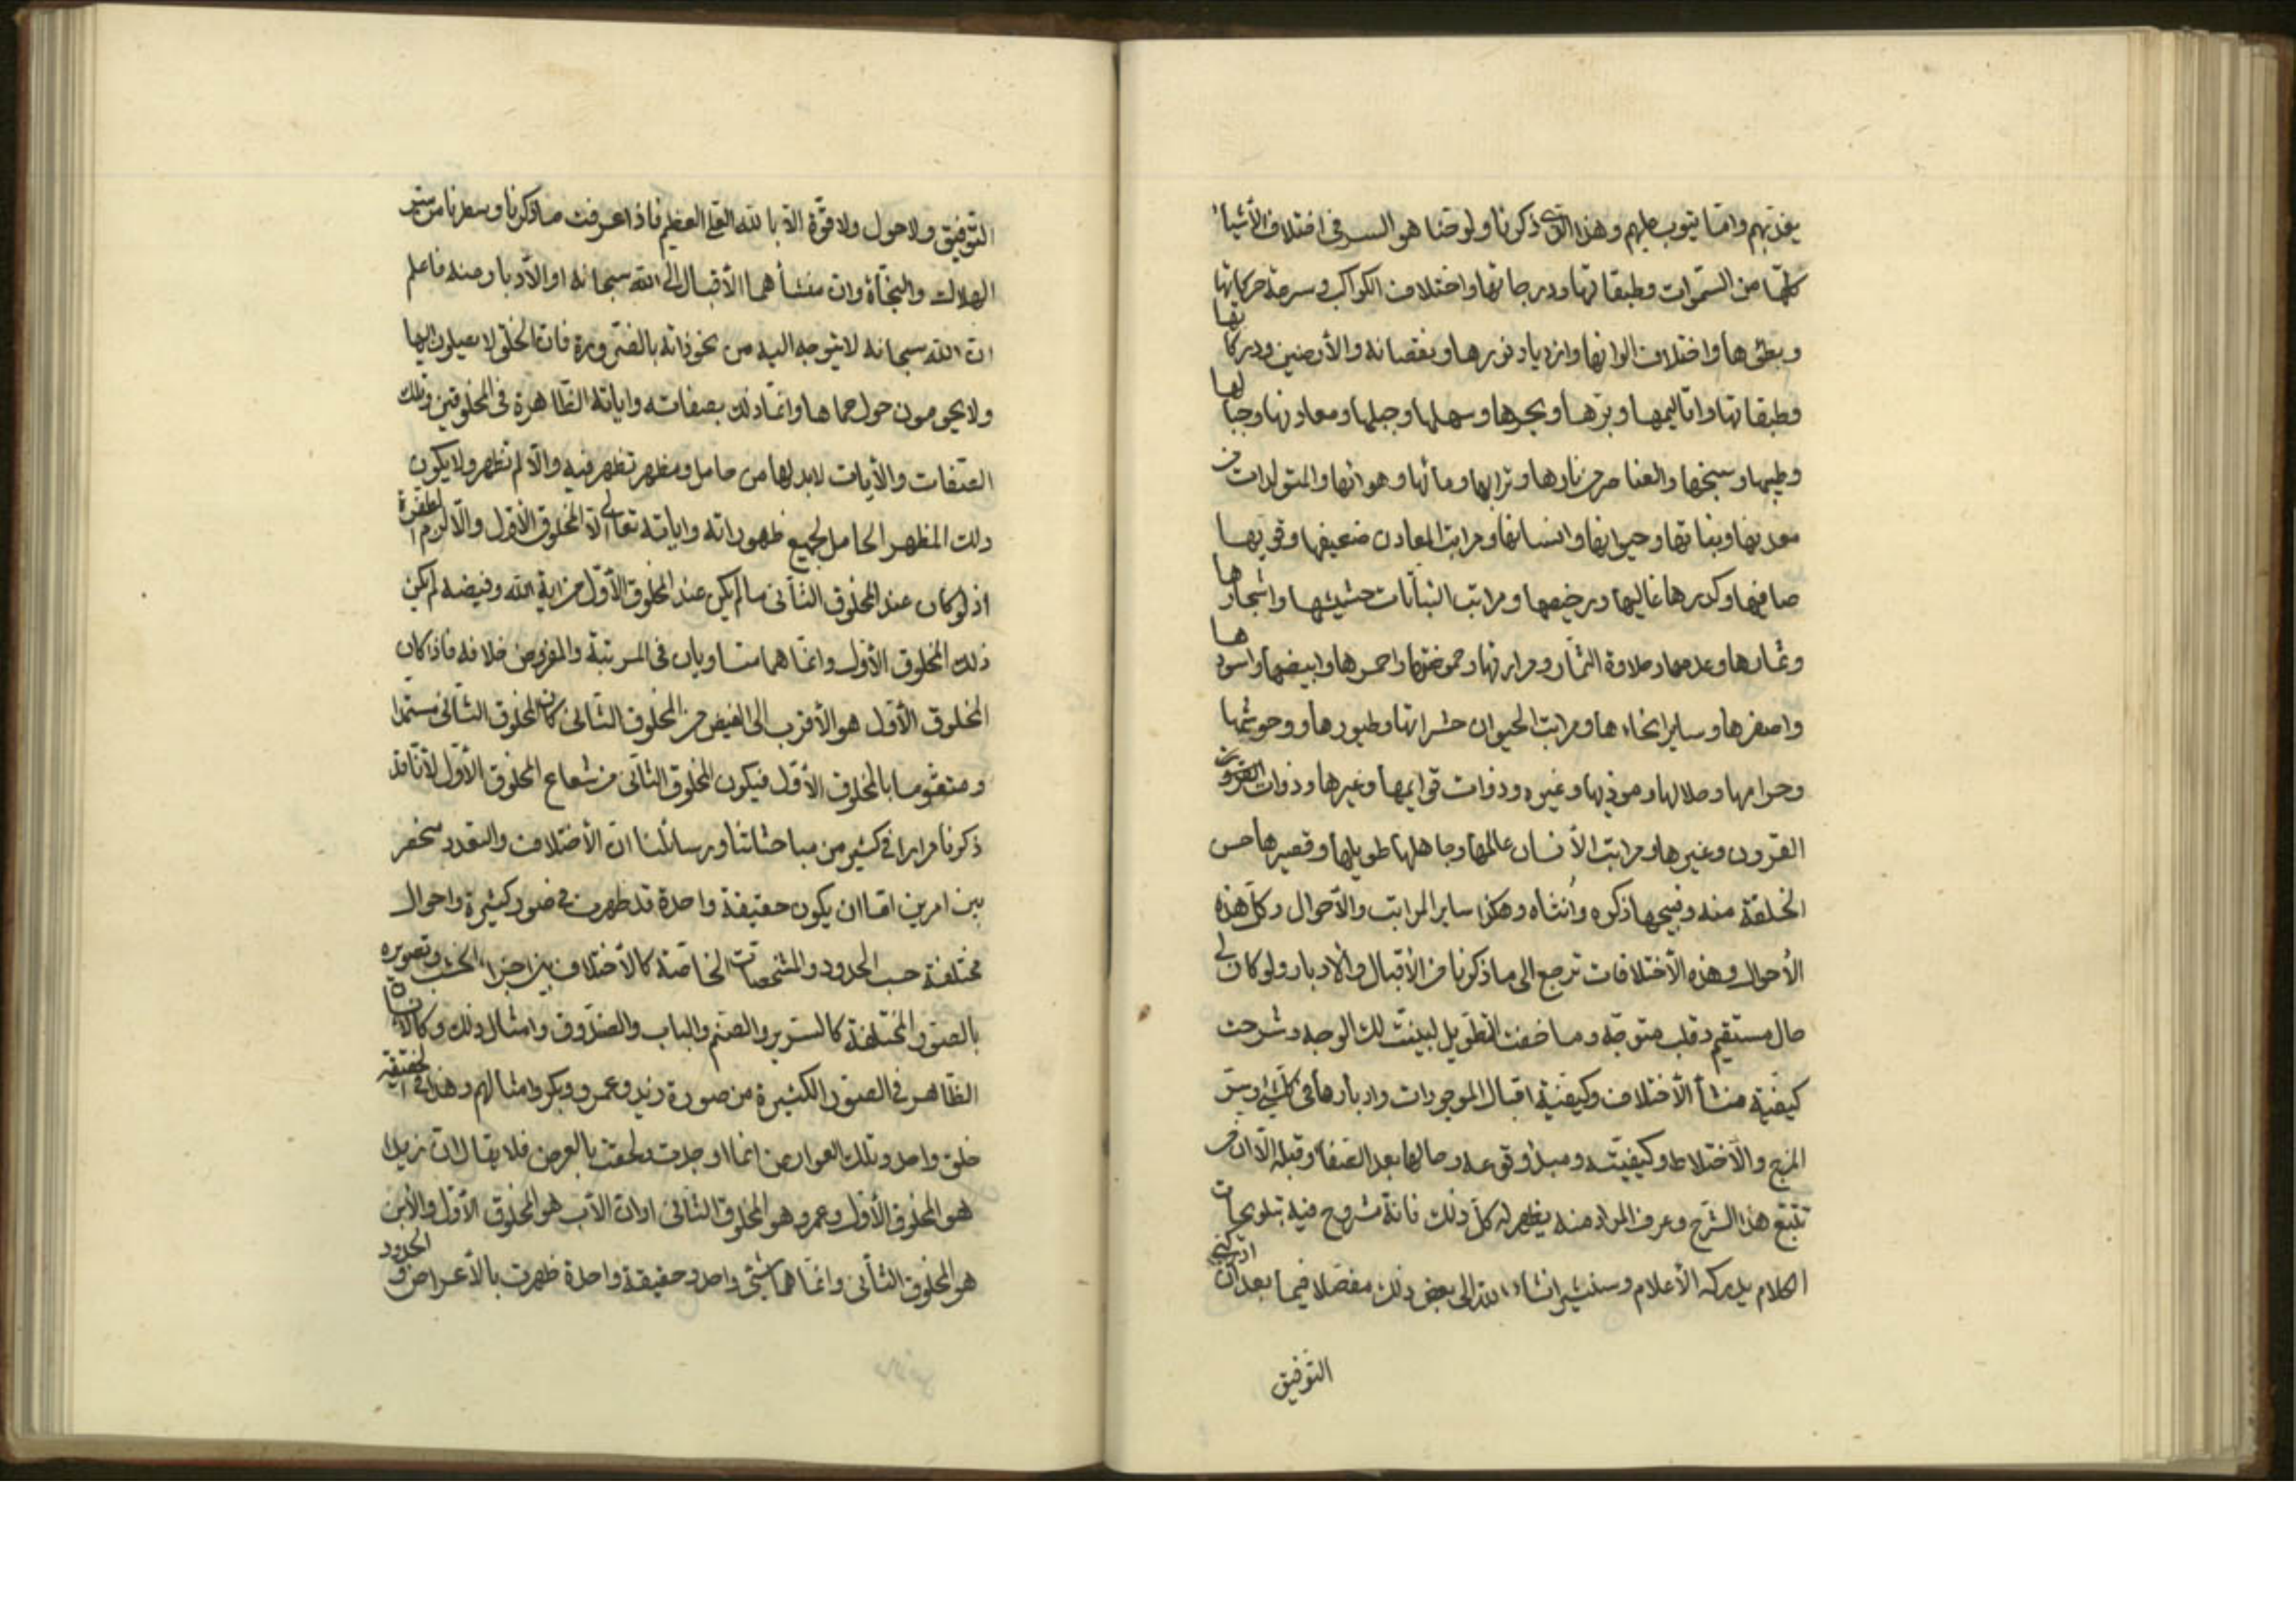 يعذبهم واما يتوب عليهم وهذا الذي ذكرنا ولوحنا هو السر في اختلاف الأشياء
كلها من السموات وطبقاتها ودرجاتها واختلاف الكواكب وسرعة حركاتها
وبطئها واختلاف الوانها وازدياد نورها ونقصانه والأرضين ودركاتها
وطبقاتها واقاليمها وبرها وبحرها وسهلها وجبلها ومعادنها وجبالها
وطيبها وسبخها والعناصر من نارها وترابها ومائها وهوائها والمتولدات من
معدنها ونباتها وحيوانها وانسانها ومراتب المعادن ضعيفها وقويها
صافيها وكدرها غاليها ورخيصها ومراتب النباتات حشيشها واشجارها
وثمارها وعدمها وحلاوة الثمار ومرارتها وحموضتها واحمرها وابيضها واسودها
واصفرها وساير انحاءها ومراتب الحيوان حشراتها وطيورها ووحوشها
وحرامها وحلالها وموذيها وغيره وذوات قوايمها وغيرها وذوات القرون
القرون وغيرها ومراتب الأنسان عالمها وجاهلها طويلها وقصيرها حسن
الخلقة منه وقبيحها ذكره وأنثاه وهكذا ساير المراتب والأحوال وكل هذه
الأحوال وهذه الأختلافات ترجع الى ما ذكرنا من الأقبال والأدبار ولو كان لي
حال مستقيم وقلب متوجه وما خفت التطويل لبينت لك الوجه وشرحت
كيفية منشأ الأختلاف وكيفية اقبال الموجودات وادبارها في كل شيء وسر
المزج والأختلاط وكيفيته ومبدء وقوعه وحالها بعد الصفا وقبله الا ان من
تتبع هذا الشرح وعرف المراد منه يظهر له كل ذلك فانه مشروح فيه بتلويحات
الكلام يدركه الأعلام وسنشير انشاء الله الى بعض ذلك مفصلا فيما بعد ان
التوفيق
التوفيق ولا حول ولا قوة الا بالله العلي العظيم فاذا عرفت ما ذكرنا وسطرنا من سر
الهلاك والنجاة وان منشأهما الأقبال الى الله سبحانه او الأدبار منه فاعلم
ان الله سبحانه لا يتوجه اليه من نحو ذاته بالضرورة فان الخلق لا يصلون اليها
ولا يحومون حول حماها وانما ذلك بصفاته واياته الظاهرة في المخلوقين وتلك
الصفات والأيات لا بد لها من حامل ومظهر تظهر فيه والا لم تظهر ولا يكون
ذلك المظهر الحامل لجميع ظهوراته واياته تعالى الا المخلوق الأول والا لزم الطفرة
اذ لو كان عند المخلوق الثاني ما لم يكن عند المخلوق الأول من اية الله وفيضه لم يكن
ذلك المخلوق الأول وانما هما متساويان في المرتبة والمفروض خلافه فاذا كان
المخلوق الأول هو الأقرب الى الفيض من المخلوق الثاني كان المخلوق الثاني مستمدا
ومتقوما بالمخلوق الأول فيكون المخلوق الثاني من شعاع المخلوق الأول لأنا قد
ذكرنا مرارا في كثير من مباحثاتنا ورسائلنا ان الأختلاف والتعدد منحصر
بين امرين اما ان يكون حقيقة واحدة قد ظهرت في صور كثيرة واحوال
مختلفة حسب الحدود والمشخصات الخاصة كالأختلاف بين اجزاء الخشب وتصويره
بالصور المختلفة كالسرير والصنم والباب والصندوق وامثال ذلك وكالأنسان
الظاهر في الصور الكثيرة من صورة زيد وعمرو وبكر وامثالهم وهذا في الحقيقة
خلق واحد وتلك العوارض انما اوجدت ولحقت بالعرض فلا يقال ان زيدا
هو المخلوق الأول وعمرو هو المخلوق الثاني او ان الأب هو المخلوق الأول والأبن
هو المخلوق الثاني وانما هما شيء واحد وحقيقة واحدة ظهرت بالأعراض والحدود